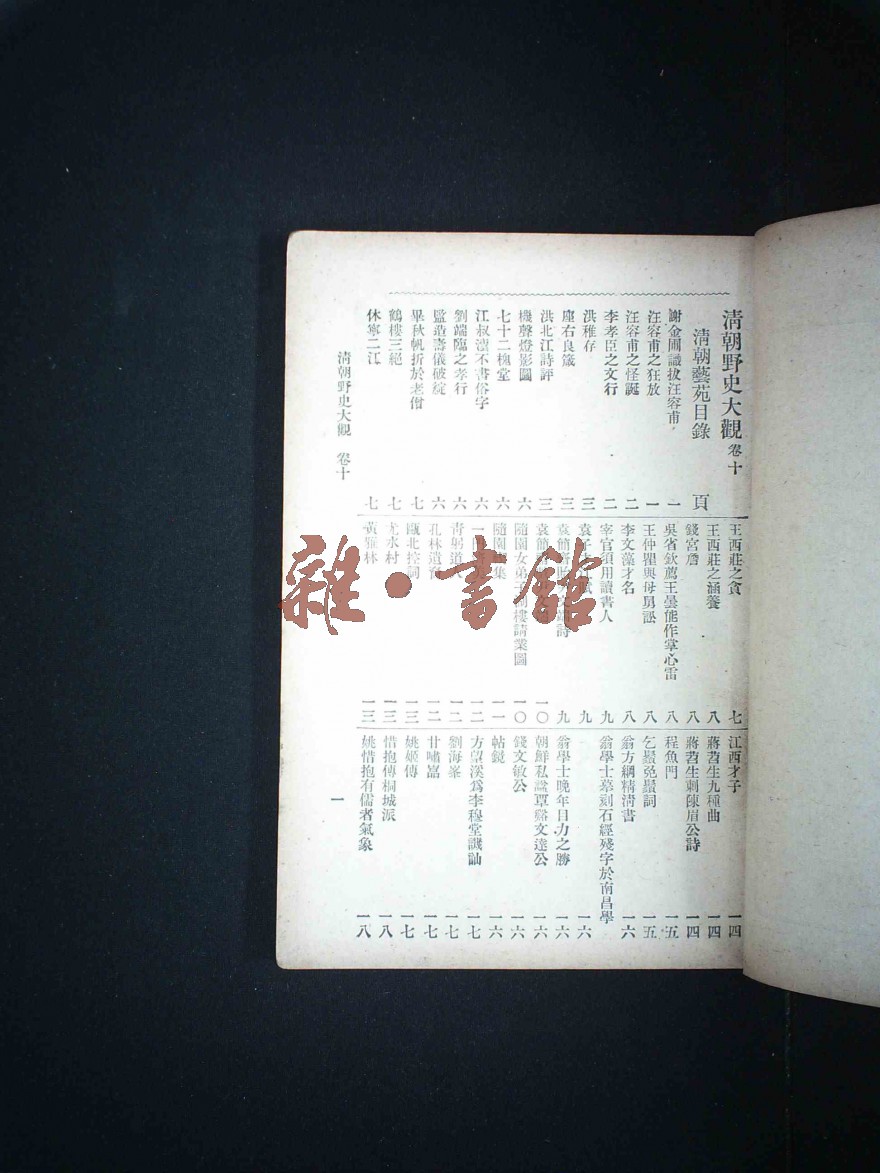 清朝野史大觀 卷十
清朝藝苑目錄 頁
謝金圃識拔汪容甫 一
汪容甫之狂放 一
汪容甫之怪誕 二
李孝臣之文行 二
洪稚存 三
座右良箴 三
洪北江詩評 三
機聲燈影圖 六
七十二槐堂 六
江叔澐不書俗字 六
劉端臨之孝行 六
監造壽儀破綻 六
畢秋帆折於老僧 七
鶴樓三絕 七
休寧二江 七
王西莊之貪 七
王西莊之涵養 八
錢宮詹 八
吳省欽薦王曇能作掌心雷 八
王仲瞿與母舅訟 八
李文藻才名 八
宰官須用讀書人 九
袁 九
袁簡齋 詩 九
袁簡 一〇
隨園女弟子湖樓請業圖 一〇
隨園 集 一一
一 一二
青 道 一二
孔林道 一二
甌北控詞 一三
尤水村 一三
黃 林 一三
江西才子 一四
蔣苕生九種曲 一四
蔣苕生刺陳眉公詩 一四
程魚門 一五
乞鬚免鬚詞 一五
翁方綱精淸書 一六
翁學士摹刻石經殘字於南昌學 一六
翁學士晚年目力之勝 一六
朝鮮私諡覃谿文達公 一六
錢文敏公 一六
帖鏡 一六
方望溪爲李穆堂譏訕 一七
劉海峯 一七
甘嘯嵓 一七
姚姬傳 一七
惜抱傳桐城派 一八
姚惜抱有儒者氣象 一八
清朝野史大觀 卷十
一
雜·書館